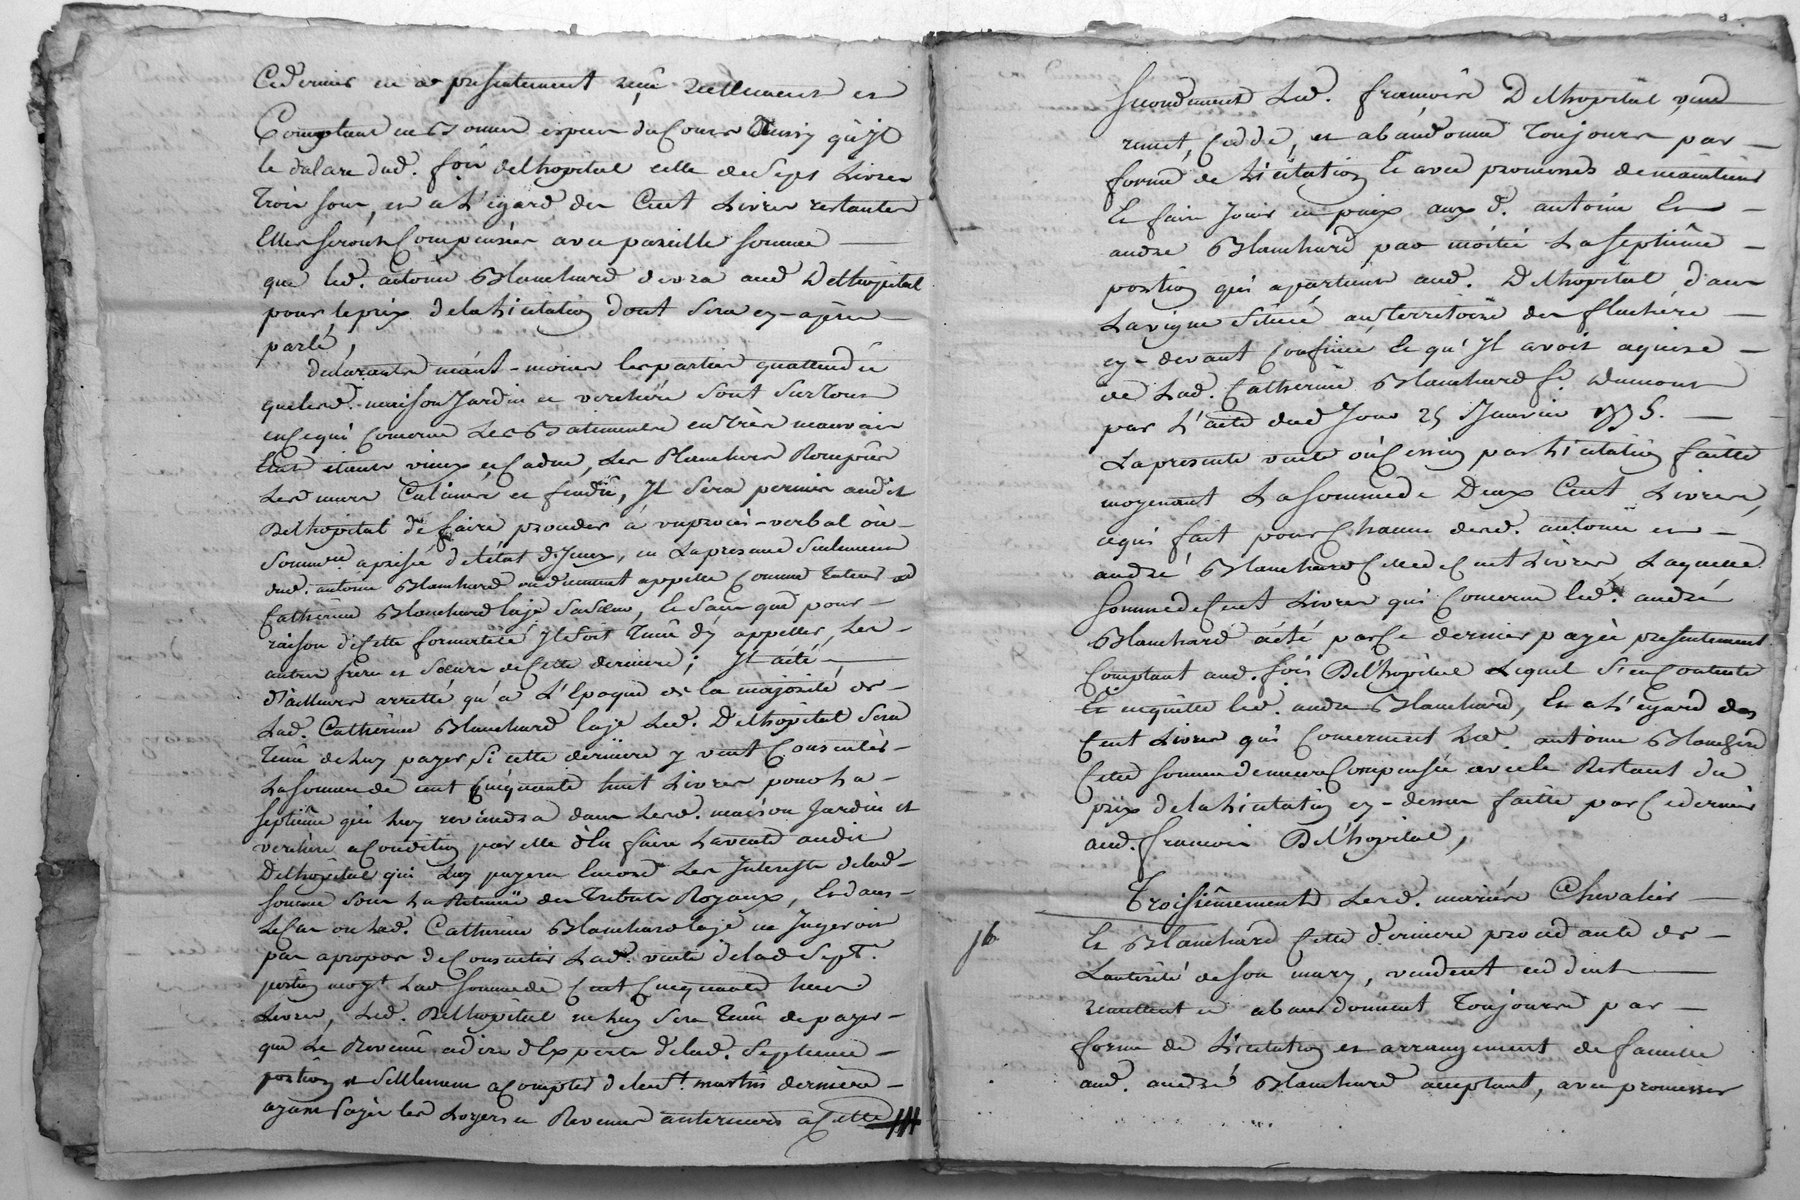 Cedernier en a presentement reçu reellement et
Comptant en bonnes especes du Cours Ainsy qu'jl
le declare dud. f.ois delhopital celle de Sept Livres
Trois sous, et a L'egard des Cent Livres restantes
Elles seront Compensées avec pareille somme
que led. antoine Blanchard devra aud Delhopital
pour le prix de la Licitation dont sera cy-après
parlé,
declarantes neant-moins les parties quattendu
que lesd. maison Jardin et verchère sont surtout
en ce qui Concerne Les Batiments en très mauvais
Etat étants vieux et Caducs, Les Planchers Rompûes
Les murs Calcinés et fendû, Jl sera permis audit
Delhopital de faire proceder à un procès-verbal où
somm.re aprisie de létat d'Jceux, en La presence seulement
dud. antoine Blanchard ou dument appellé Comme Tuteur de
Catherine Blanchard laje sa sœur, le sans que pour
raison de Cette formalité Jl soit Tenû d'y appeller, Les
autres frères et sœurs de Cette derniere; Jl a été
d'ailleurs arretté qu'a L'Epoque de la majorité de
Lad. Catherine Blanchard laje Led. Delhopital sera
Tenû de Luy payer si cette derniere y veut Consentir
La somme de cent Cinquante huit Livres pour La
septième qui Luy reviendra dans Lesd. maison Jardin et
verchère a Condition par elle d'En faire La vente audit
Delhopital qui Luy payera Encore Les Interests de lad
somme sous La Retenue des Tributs Royaux, Et dans
Le Cas ou Lad. Catherine Blanchard laje ne Jugeroit
pas apropos de Consentir Lad. vente de lad sept.e
portion moy.t Lad somme de Cent Cinquante huit
Livres, Led. Delhopital ne luy sera Tenû de payer
que Le Revenû adire d'Experts de lad. septieme
portion et seulement a Compter de la St. martin derniere
ayant payé les Loyers et Revenus anterieurs a Cette
secondement Led. francois Delhopital, vend
remet, Cedde, et abandonne Toujours par
forme de Licitation Et avec promesses de maintenir
Et faire Jouir en paix, aux d. antoine Et
andré Blanchard par moitié La septieme
portion qui apartient aud. Delhopital dans
La vigne située au territoire des flachere
cy-devant Confinée Et qu'Jl avoit aquise
de Lad. Catherine Blanchard f.e Dumont
par L'acte dud Jour 25 Janvier 1775.
La presente vente où Cession par Licitation faitte
moyenant La somme de Deux Cent Livres,
ce qui fait pour Chacun desd. antoine et
andré Blanchard Celle de Cent Livres Laquelle
somme de Cent Livres qui Concerne led. andré
Blanchard a été par Ce dernier payée presentement
Comptant aud. f.ois Delhopital Lequel s'en Contente
Et en quitte led. andré Blanchard, Et a L'egard des
Cent Livres qui Concernent Led. antoine Blanchard
Cette somme demeure Compensée avec le Restant du
prix de la Licitation cy-dessus faitte par Ce dernier
aud. francois Delhopital,
Troisiemement Lesd. mariés Chevalier
16
Et Blanchard Cette derniere procedante de
Lautorité de son mary, vendent ceddent
remettent et abandonnent Toujours par
forme de Licitation et arrangement de famille
aud. andré Blanchard acceptant, avec promesses